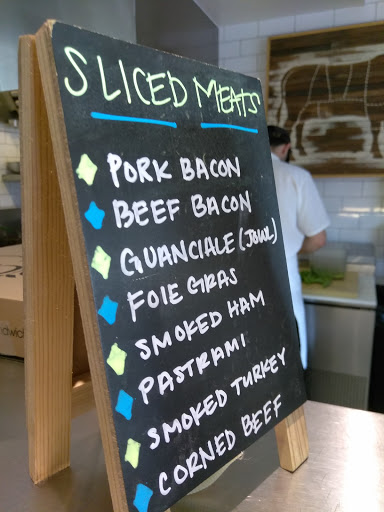 SLICED MEATS
PORK BACON
BEEF BACON
GUANCIALE (JOWL)
FOIE GRAS
SMOKED HAM
PASTRAMI
SMOKED TURKEY
CORNED BEEF